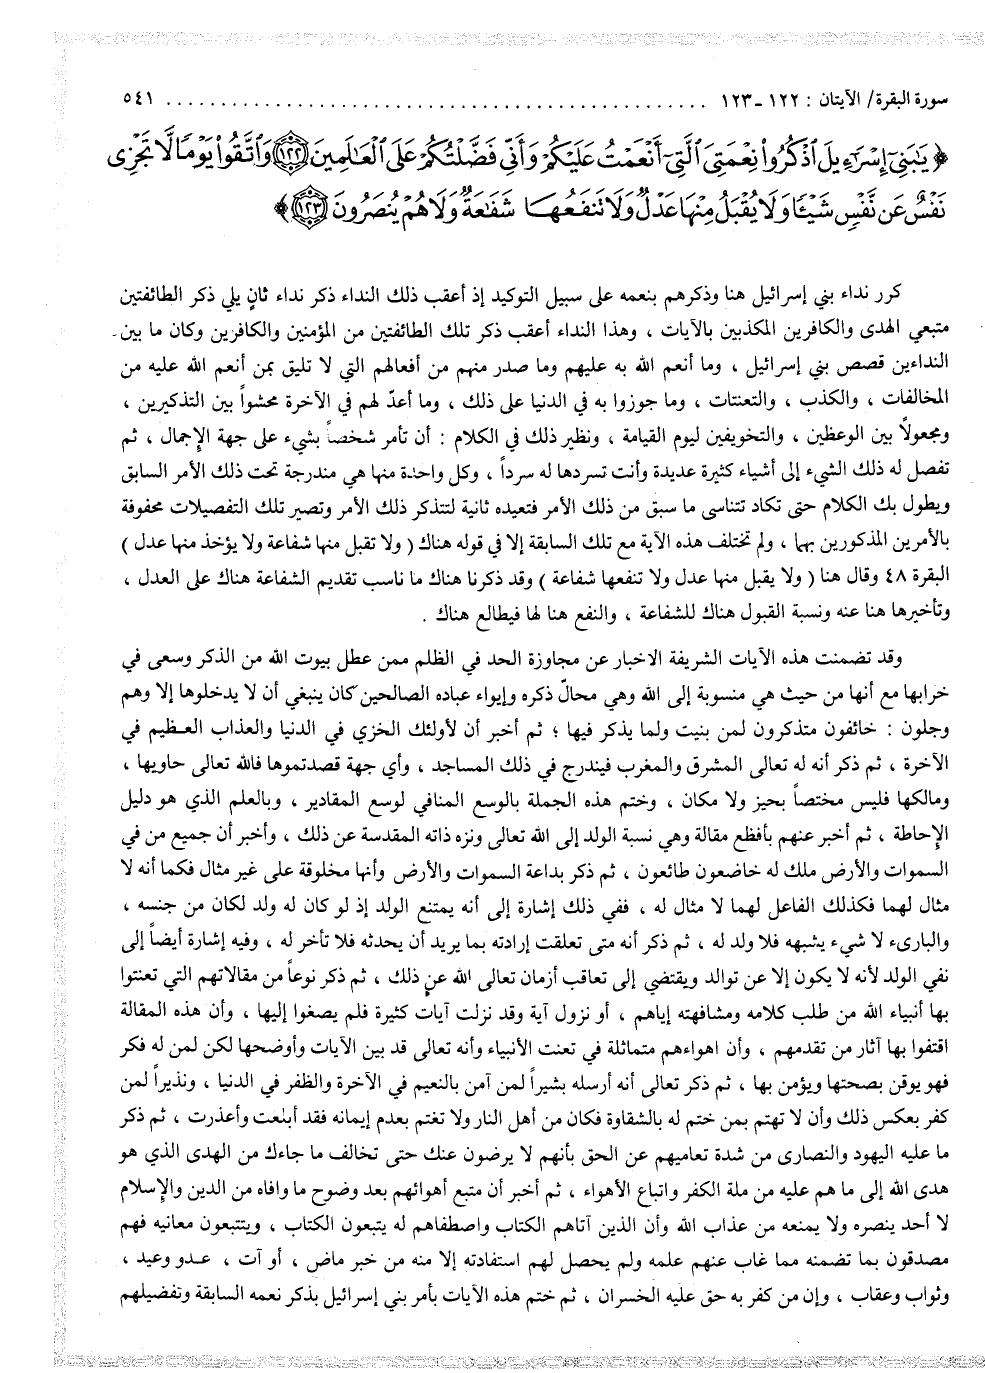 سورة البقرة/ الآيتان : ١٢٢ ـ ١٢٣ ........................................ ٥٤١
﴿ يَٰبَنِىٓ إِسْرَٰٓءِيلَ ٱذْكُرُوا۟ نِعْمَتِىَ ٱلَّتِىٓ أَنْعَمْتُ عَلَيْكُمْ وَأَنِّى فَضَّلْتُكُمْ عَلَى ٱلْعَٰلَمِينَ ١٢٢ وَٱتَّقُوا۟ يَوْمًا لَّا تَجْزِى
نَفْسٌ عَن نَّفْسٍ شَيْـًٔا وَلَا يُقْبَلُ مِنْهَا عَدْلٌ وَلَا تَنفَعُهَا شَفَٰعَةٌ وَلَا هُمْ يُنصَرُونَ ١٢٣ ﴾
كرر نداء بني إسرائيل هنا وذكرهم بنعمه على سبيل التوكيد إذ أعقب ذلك النداء ذكر نداء ثانٍ يلي ذكر الطائفتين
متبعي الهدى والكافرين المكذبين بالآيات ، وهذا النداء أعقب ذكر تلك الطائفتين من المؤمنين والكافرين وكان ما بين
النداءين قصص بني إسرائيل ، وما أنعم الله به عليهم وما صدر منهم من أفعالهم التي لا تليق بمن أنعم الله عليه من
المخالفات ، والكذب ، والتعنتات ، وما جوزوا به في الدنيا على ذلك ، وما أعدّ لهم في الآخرة محشواً بين التذكيرين ،
ومجعولاً بين الوعظين ، والتخويفين ليوم القيامة ، ونظير ذلك في الكلام : أن تأمر شخصاً بشيء على جهة الإجمال ، ثم
تفصل له ذلك الشيء إلى أشياء كثيرة عديدة وأنت تسردها له سرداً ، وكل واحدة منها هي مندرجة تحت ذلك الأمر السابق
ويطول بك الكلام حتى تكاد تتناسى ما سبق من ذلك الأمر فتعيده ثانية لتتذكر ذلك الأمر وتصير تلك التفصيلات محفوفة
بالأمرين المذكورين بهما ، ولم تختلف هذه الآية مع تلك السابقة إلا في قوله هناك ( ولا تقبل منها شفاعة ولا يؤخذ منها عدل )
البقرة ٤٨ وقال هنا ( ولا يقبل منها عدل ولا تنفعها شفاعة ) وقد ذكرنا هناك ما ناسب تقديم الشفاعة هناك على العدل ،
وتأخيرها هنا عنه ونسبة القبول هناك للشفاعة ، والنفع هنا لها فيطالع هناك .
وقد تضمنت هذه الآيات الشريفة الاخبار عن مجاوزة الحد في الظلم ممن عطل بيوت الله من الذكر وسعى في
خرابها مع أنها من حيث هي منسوبة إلى الله وهي محالّ ذكره وإيواء عباده الصالحين كان ينبغي أن لا يدخلوها إلا وهم
وجلون : خائفون متذكرون لمن بنيت ولما يذكر فيها ؛ ثم أخبر أن لأولئك الخزي في الدنيا والعذاب العظيم في
الآخرة ، ثم ذكر أنه له تعالى المشرق والمغرب فيندرج في ذلك المساجد ، وأي جهة قصدتموها فالله تعالى حاويها ،
ومالكها فليس مختصاً بحيز ولا مكان ، وختم هذه الجملة بالوسع المنافي لوسع المقادير ، وبالعلم الذي هو دليل
الإحاطة ، ثم أخبر عنهم بأفظع مقالة وهي نسبة الولد إلى الله تعالى ونزه ذاته المقدسة عن ذلك ، وأخبر أن جميع من في
السموات والأرض ملك له خاضعون طائعون ، ثم ذكر بداعة السموات والأرض وأنها مخلوقة على غير مثال فكما أنه لا
مثال لهما فكذلك الفاعل لهما لا مثال له ، ففي ذلك إشارة إلى أنه يمتنع الولد إذ لو كان له ولد لكان من جنسه ،
والبارىء لا شيء يشبهه فلا ولد له ، ثم ذكر أنه متى تعلقت إرادته بما يريد أن يحدثه فلا تأخر له ، وفيه إشارة أيضاً إلى
نفي الولد لأنه لا يكون إلا عن توالد ويقتضي إلى تعاقب أزمان تعالى الله عن ذلك ، ثم ذكر نوعاً من مقالاتهم التي تعنتوا
بها أنبياء الله من طلب كلامه ومشافهته إياهم ، أو نزول آية وقد نزلت آيات كثيرة فلم يصغوا إليها ، وأن هذه المقالة
اقتفوا بها آثار من تقدمهم ، وأن اهواءهم متماثلة في تعنت الأنبياء وأنه تعالى قد بين الآيات وأوضحها لكن لمن له فكر
فهو يوقن بصحتها ويؤمن بها ، ثم ذكر تعالى أنه أرسله بشيراً لمن آمن بالنعيم في الآخرة والظفر في الدنيا ، ونذيراً لمن
كفر بعكس ذلك وأن لا تهتم بمن ختم له بالشقاوة فكان من أهل النار ولا تغتم بعدم إيمانه فقد أبلغت وأعذرت ، ثم ذكر
ما عليه اليهود والنصارى من شدة تعاميهم عن الحق بأنهم لا يرضون عنك حتى تخالف ما جاءك من الهدى الذي هو
هدى الله إلى ما هم عليه من ملة الكفر واتباع الأهواء ، ثم أخبر أن متبع أهوائهم بعد وضوح ما وافاه من الدين والإسلام
لا أحد ينصره ولا يمنعه من عذاب الله وأن الذين آتاهم الكتاب واصطفاهم له يتبعون الكتاب ، ويتتبعون معانيه فهم
مصدقون بما تضمنه مما غاب عنهم علمه ولم يحصل لهم استفادته إلا منه من خبر ماض ، أو آت ، عدو وعيد ،
وثواب وعقاب ، وإن من كفر به حق عليه الخسران ، ثم ختم هذه الآيات بأمر بني إسرائيل بذكر نعمه السابقة وتفضيلهم